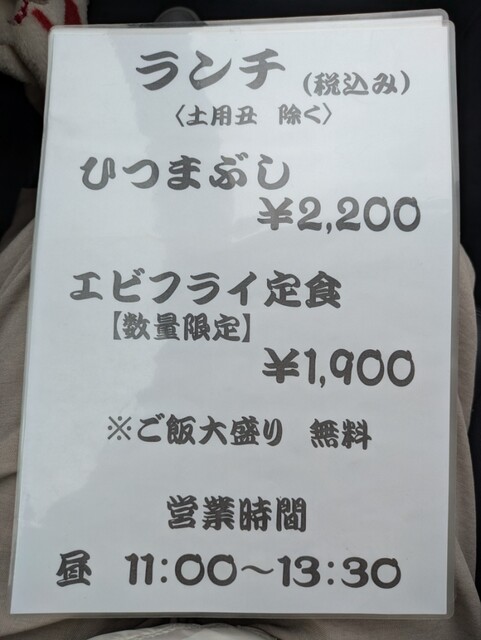 ランチ (税込み)
〈土用丑 除く〉
ひつまぶし
¥2,200
エビフライ定食
【数量限定】
¥1,900
※ご飯大盛り 無料
営業時間
昼 11:00～13:30